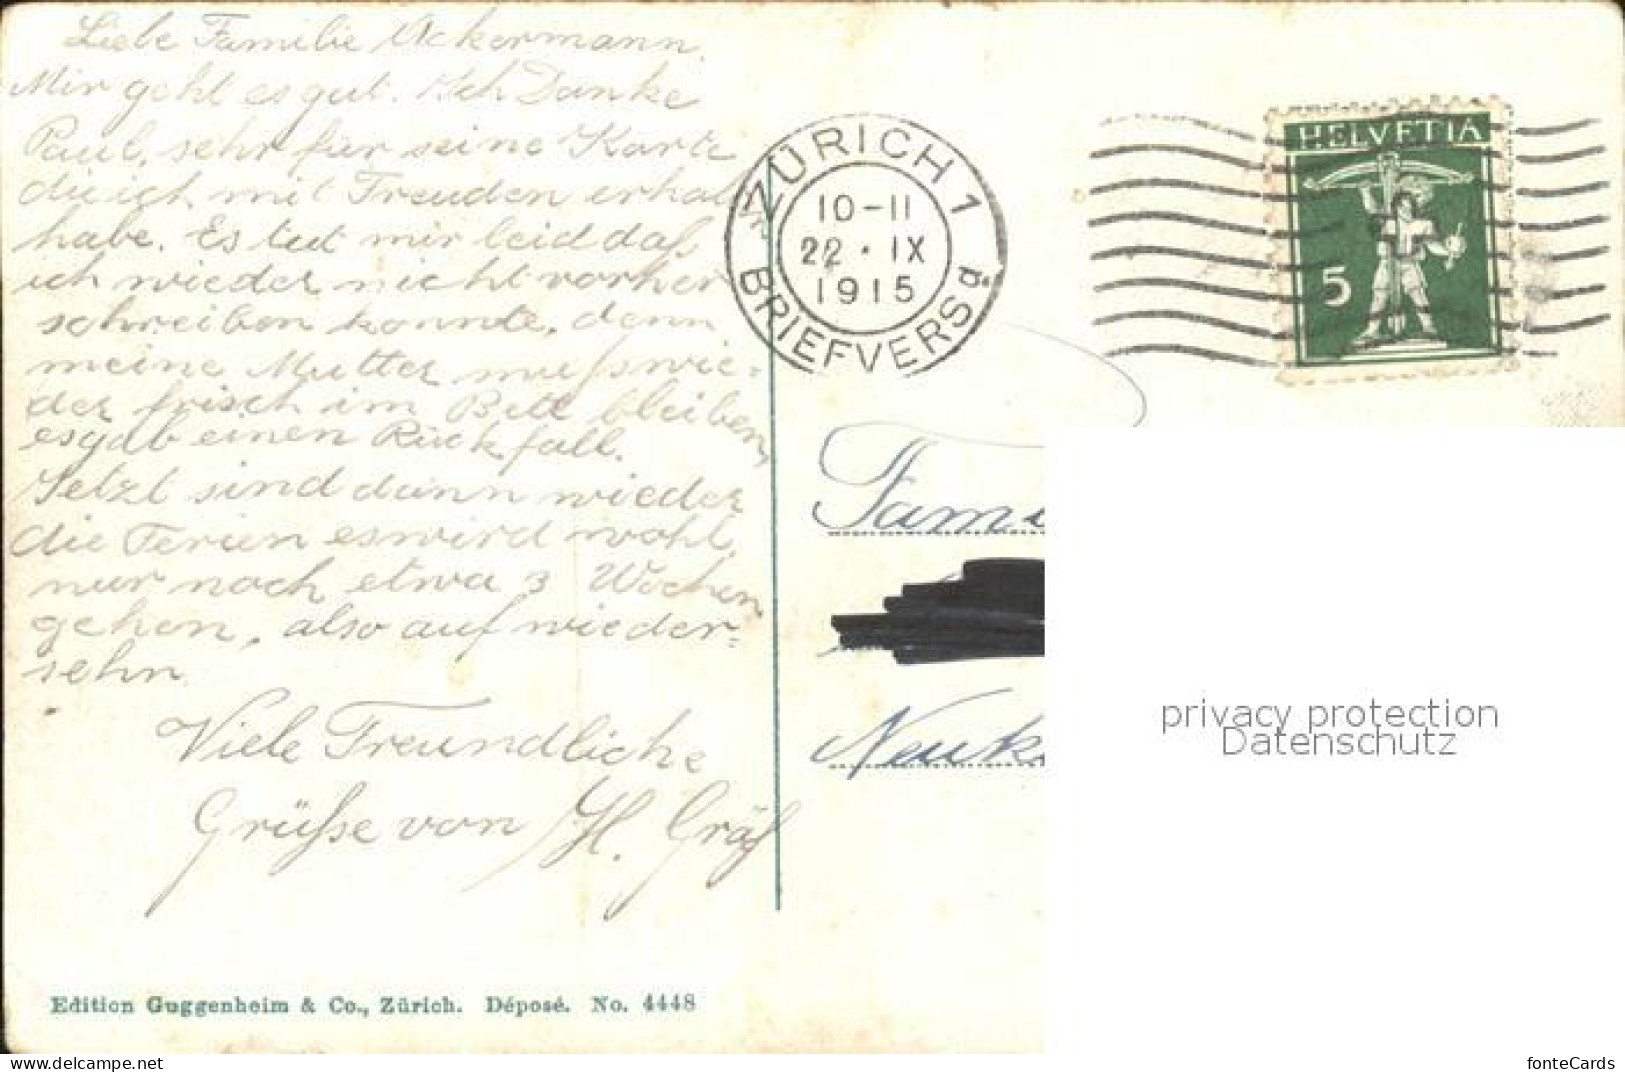 Liebe Familie Ackermann.
Mir geht es gut. Ich Danke
Paul, sehr für seine Karte
die ich mit Freuden erhalten
habe. Es tut mir leid daß
ich wieder nicht vorher
schreiben konnte, denn
meine Mutter mußs wie-
der frisch im Bett bleiben,
es gab einen Rückfall.
Jetzt sind dann wieder
die Ferien es wird wohl,
nur noch etwa 3 Wochen
gehen, also auf wieder-
sehn.
Viele Freundliche
Grüße von H. Gräf
Edition Guggenheim & Co., Zürich. Déposé. No. 4448
ZÜRICH 1
10-11
22 · IX
1915
BRIEFVERSd
HELVETIA
5
Fami
Neuk
privacy protection
Datenschutz
www.delcampe.net
fonteCards